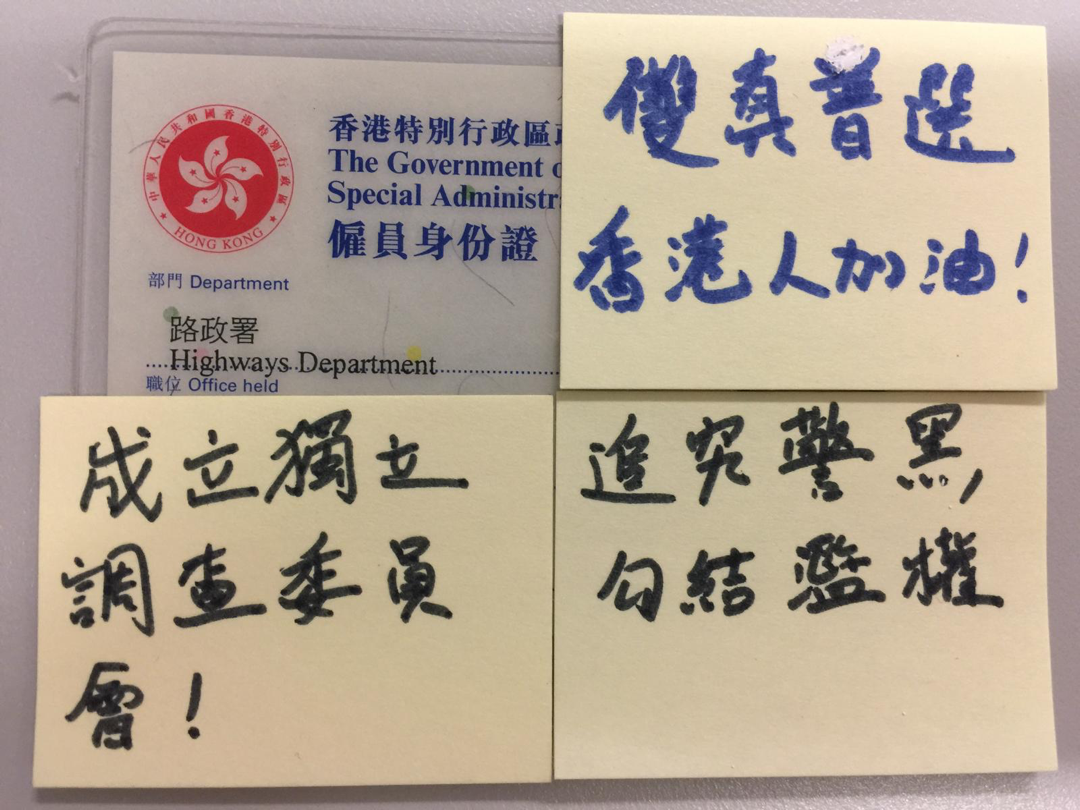 中華人民共和國香港特別行政區
HONG KONG
香港特別行政區政
The Government o
Special Administra
僱員身份證
部門 Department
路政署
Highways Department
職位 Office held
雙真普選
香港人加油!
成立獨立
調查委員
會!
追究警黑,
勾結濫權